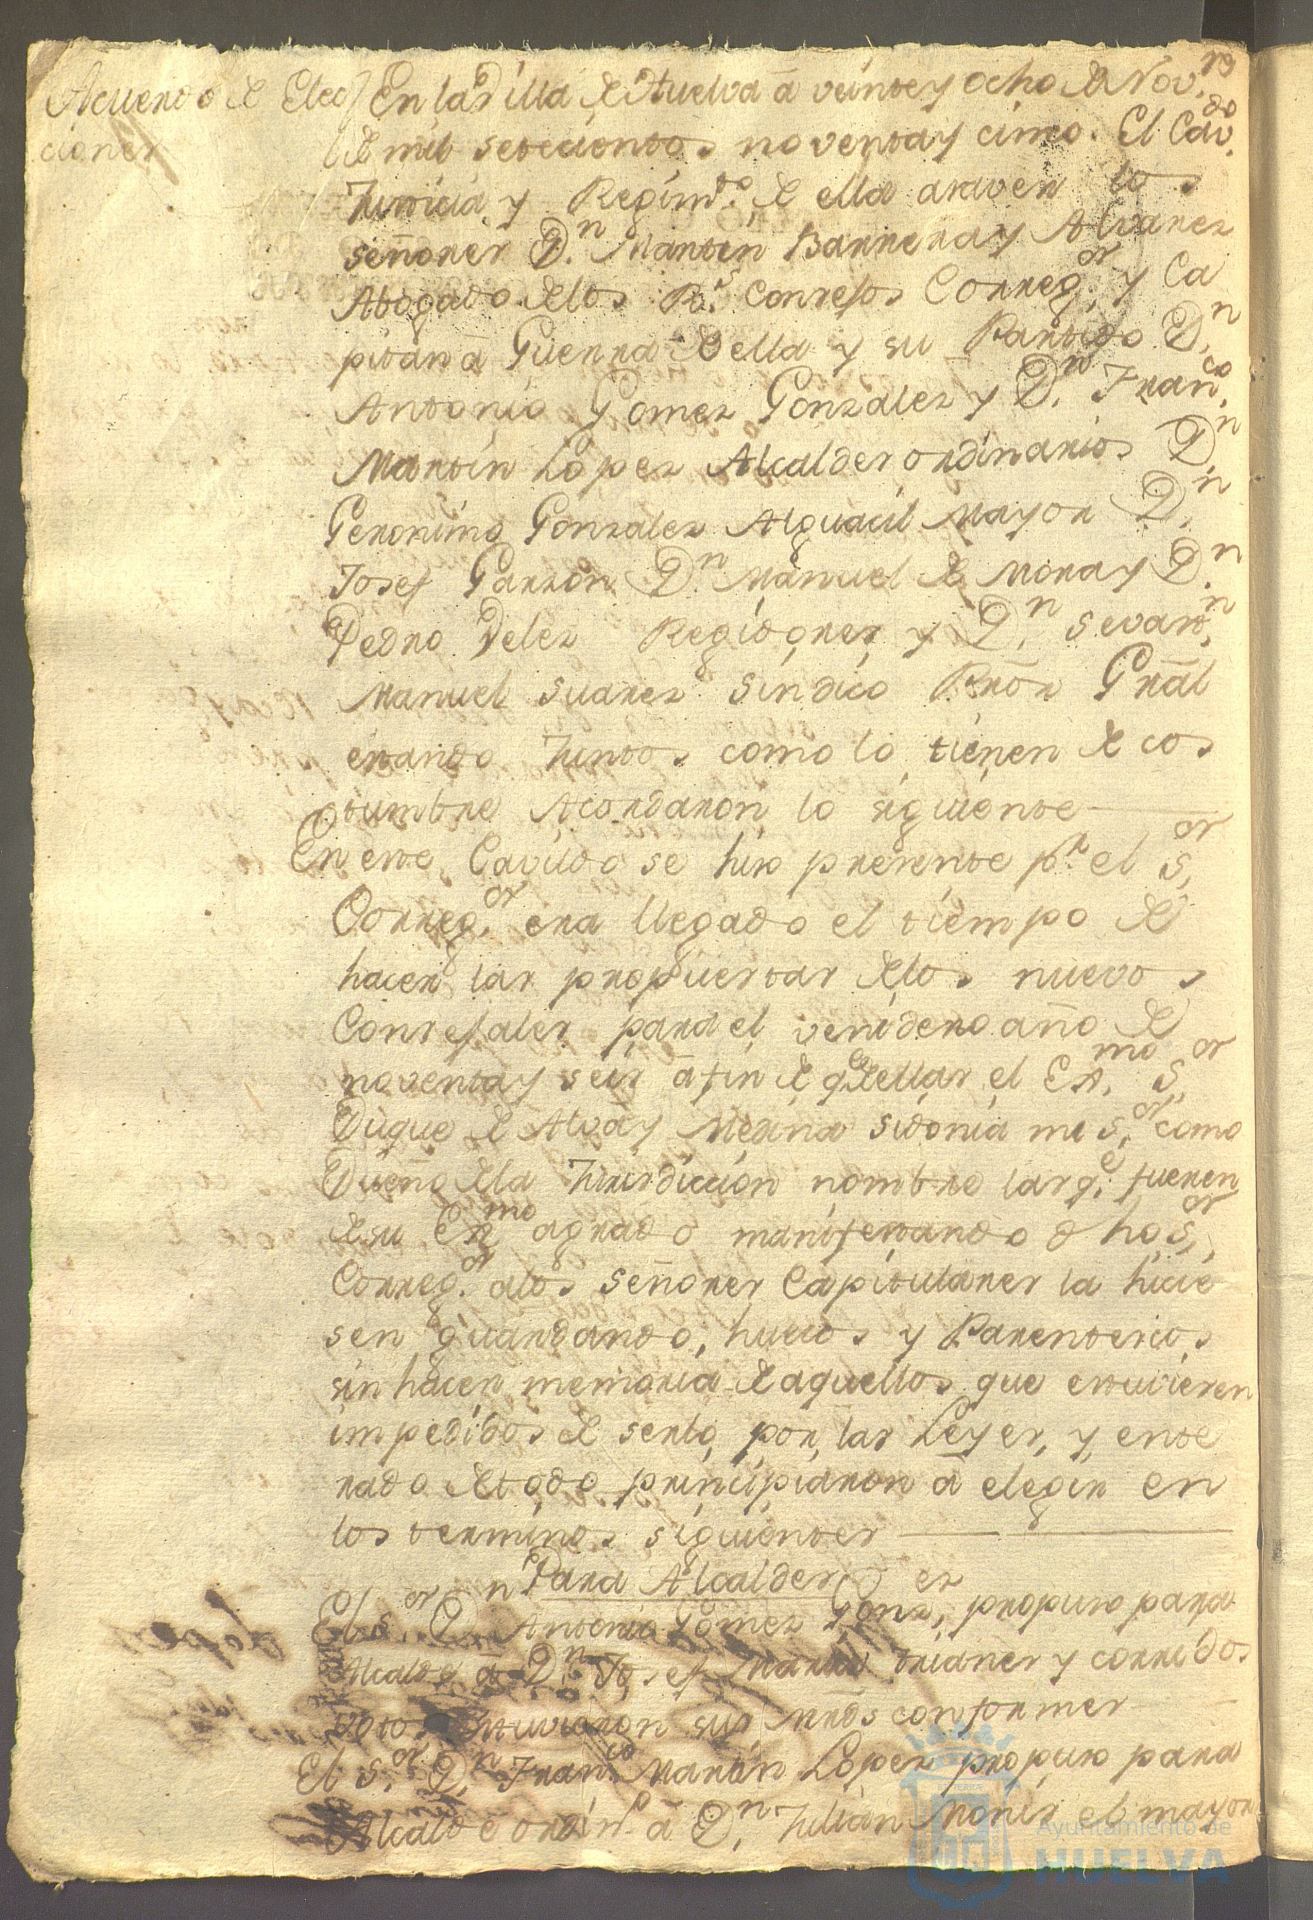 19
Acuerdo de Elec
ciones
En la Villa de Huelva a veinte y ocho de Nov.
de mil setecientos noventa y cinco. El Cav.do
Justicia y Regim.to de ella asaven los
señores D.n Martin Barrera y Alvarez
Abogado de los R.s Consejos Correg.or y Ca
pitan a Guerra de ella y su Partido D.n
Antonio Gomez Gonzalez y D.n Fran.co
Martin Lopez Alcaldes ordinarios D.n
Geronimo Gonzalez Alguacil Mayor D.n
Josef Garzon D.n Manuel de Mora y D.n
Pedro Velez Regidores y D.n Sevast.n
Manuel Suarez Sindico Prōr Grāl
estando Juntos como lo tienen de cos
tumbre Acordaron lo siguiente
En este Cavildo se hizo presente p.r el S.or
Correg.or era llegado el tiempo de
hacer las propuestas de los nuevos
Consejales para el venidero año de
noventa y seis a fin de q.e de ellas el Ex.mo S.or
Duque de Alva y Medina Sidonia mi S.or como
Dueño de la Jurisdiccion nombre las q.e fueren
de su Ex.mo agrado manifestando dho S.or
Correg.or a los señores Capitulares la hicie
sen guardando, huecos y Parentescos
sin hacer memoria de aquellos que estuvieren
impedidos de serlo por las Leyes, y ente
rado de todo principiaron a elegir en
los terminos siguientes
Para Alcaldes
El S.or D.n Antonio Gomez Gonz.ez propuso para
Alcalde a D.n Josef Maria Trianes y corridos
votos estuvieron sus mrds conformes
El S.or D.n Fran.co Martin Lopez propuso para
Alcalde ordin.o a D.n Julian Monis el mayor
Ayuntamiento de
HUELVA